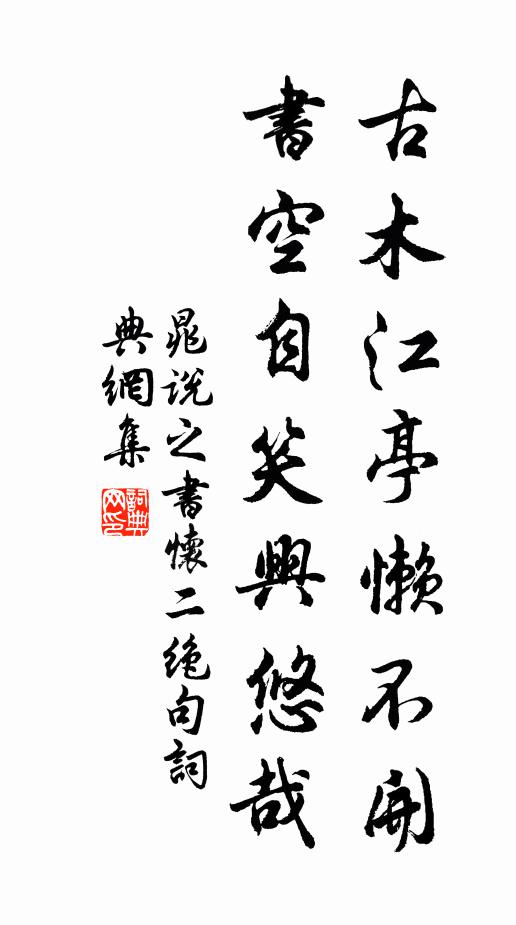 古木江亭懶不開
書空自笑興悠哉
晁說之書懷二絶句詞
典網集
詞典網印